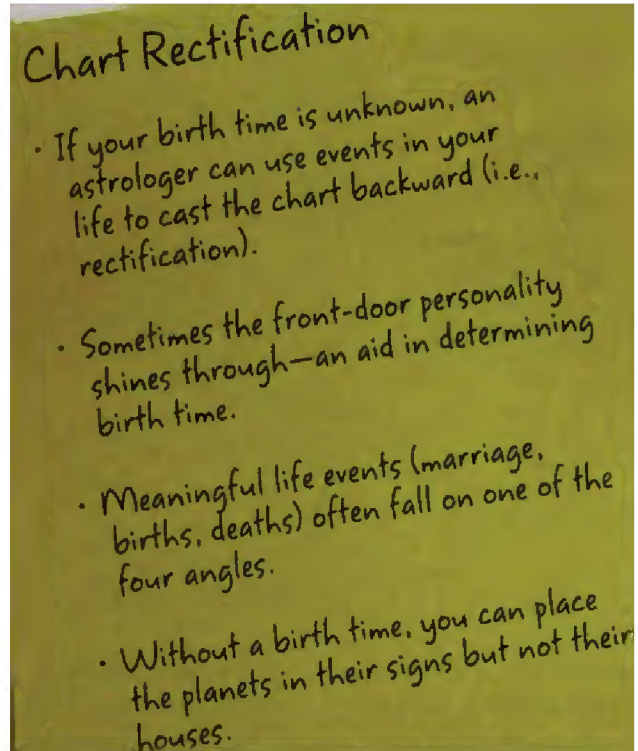 Chart Rectification
· If your birth time is unknown, an
astrologer can use events in your
life to cast the chart backward (i.e.,
rectification).
· Sometimes the front-door personality
shines through—an aid in determining
birth time.
· Meaningful life events (marriage,
births, deaths) often fall on one of the
four angles.
· Without a birth time, you can place
the planets in their signs but not their
houses.